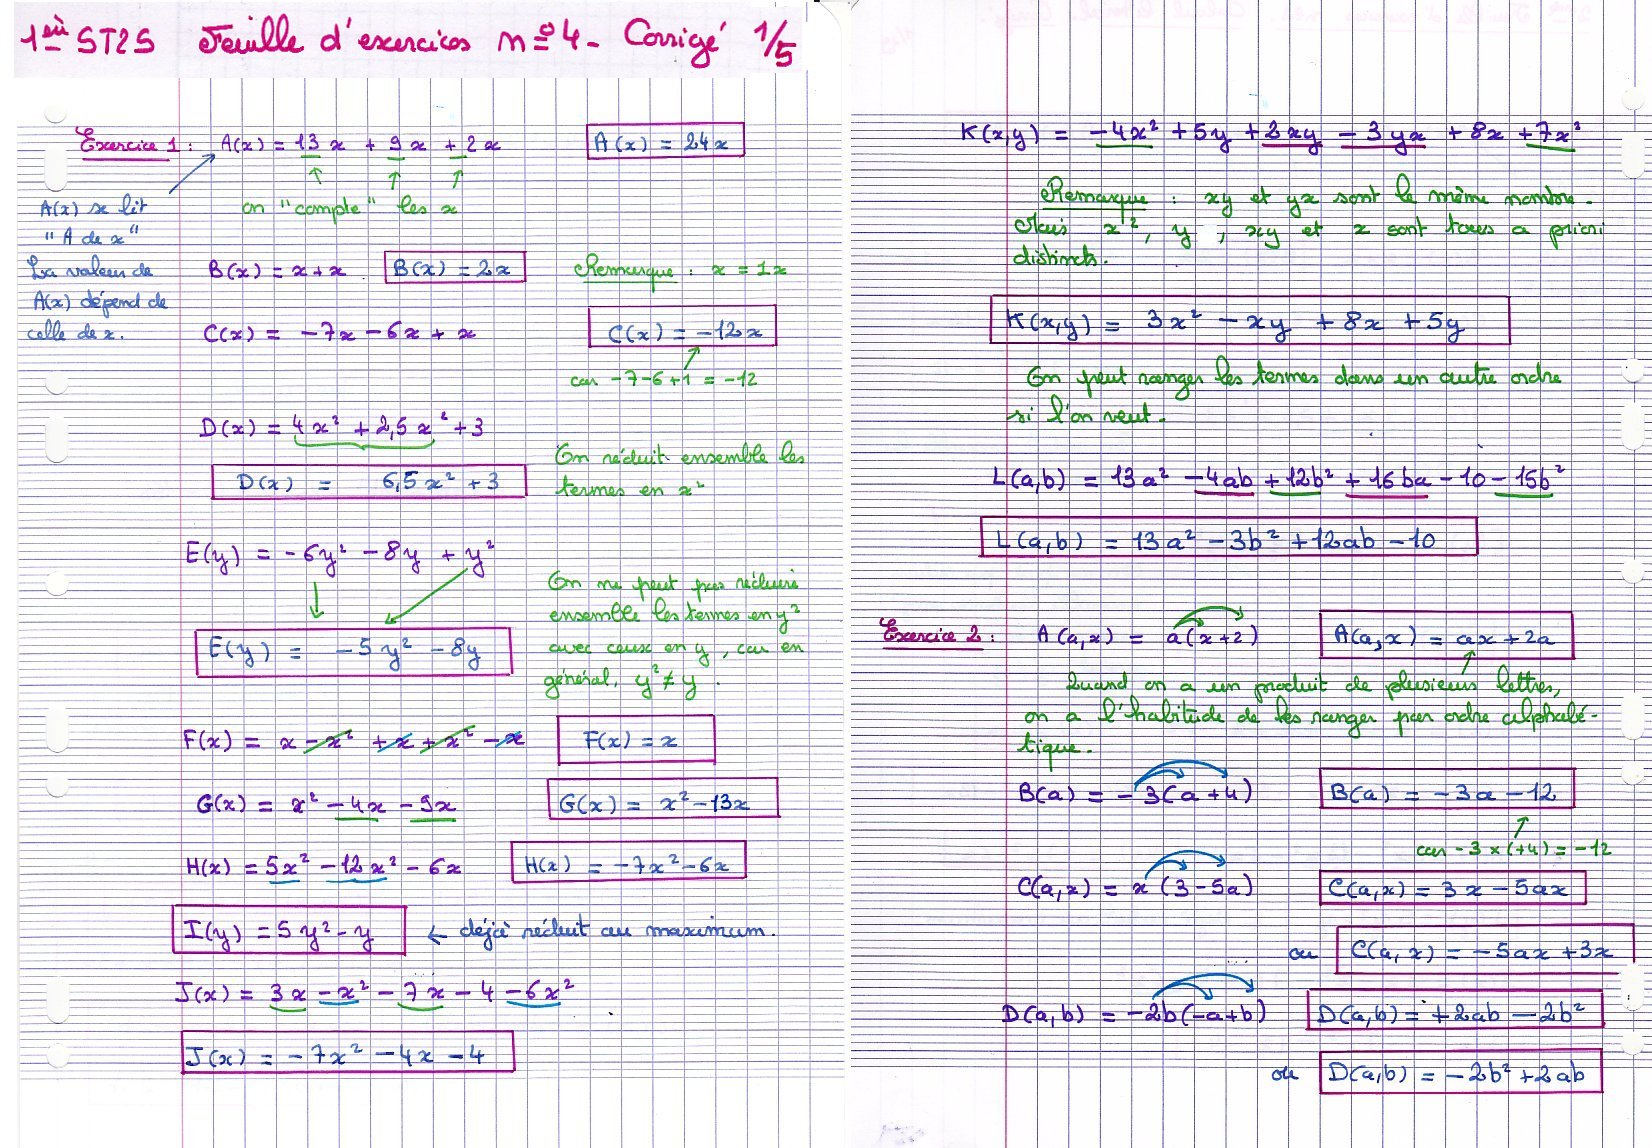 1ère ST2S Feuille d'exercices n°4 - Corrigé 1/5
Exercice 1 : A(x) = 13x + 9x + 2x
A(x) = 24x
A(x) se lit
"A de x"
La valeur de
A(x) dépend de
celle de x.
on "compte" les x
B(x) = x + x
B(x) = 2x
Remarque : x = 1x
C(x) = -7x - 6x + x
C(x) = -12x
car -7-6+1 = -12
D(x) = 4x² + 2,5x² + 3
D(x) = 6,5x² + 3
On réduit ensemble les
termes en x²
E(y) = -6y² - 8y + y²
E(y) = -5y² - 8y
On ne peut pas réduire
ensemble les termes en y²
avec ceux en y, car en
général, y² ≠ y.
F(x) = x - x² + x + x² - x
F(x) = x
G(x) = x² - 4x - 9x
G(x) = x² - 13x
H(x) = 5x² - 12x² - 6x
H(x) = -7x² - 6x
I(y) = 5y² - y
← déjà réduit au maximum.
J(x) = 3x - x² - 7x - 4 - 6x²
J(x) = -7x² - 4x - 4
K(x,y) = -4x² + 5y + 2xy - 3yx + 8x + 7x²
Remarque : xy et yx sont le même nombre.
Mais x², y, xy et x sont tous a priori
distincts.
K(x,y) = 3x² - xy + 8x + 5y
On peut ranger les termes dans un autre ordre
si l'on veut.
L(a,b) = 13a² - 4ab + 12b² + 16ba - 10 - 15b²
L(a,b) = 13a² - 3b² + 12ab - 10
Exercice 2 : A(a,x) = a(x+2)
A(a,x) = ax + 2a
Quand on a un produit de plusieurs lettres,
on a l'habitude de les ranger par ordre alphabé-
tique.
B(a) = -3(a+4)
B(a) = -3a - 12
car -3 × (+4) = -12
C(a,x) = x(3-5a)
C(a,x) = 3x - 5ax
ou C(a,x) = -5ax + 3x
D(a,b) = -2b(-a+b)
D(a,b) = +2ab - 2b²
ou D(a,b) = -2b² + 2ab